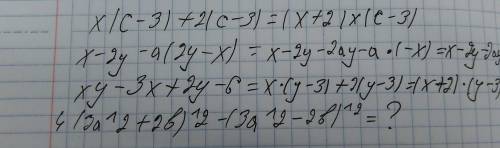 x(c-3)+2(c-3)=(x+2)x(c-3)
x-2y-a(2y-x)=x-2y-2ay-a·(-x)=x-2y-2ay
xy-3x+2y-6=x·(y-3)+2(y-3)=(x+2)·(y-3)
4(3a^2+2b)^2-(3a^2-2b)^2=?